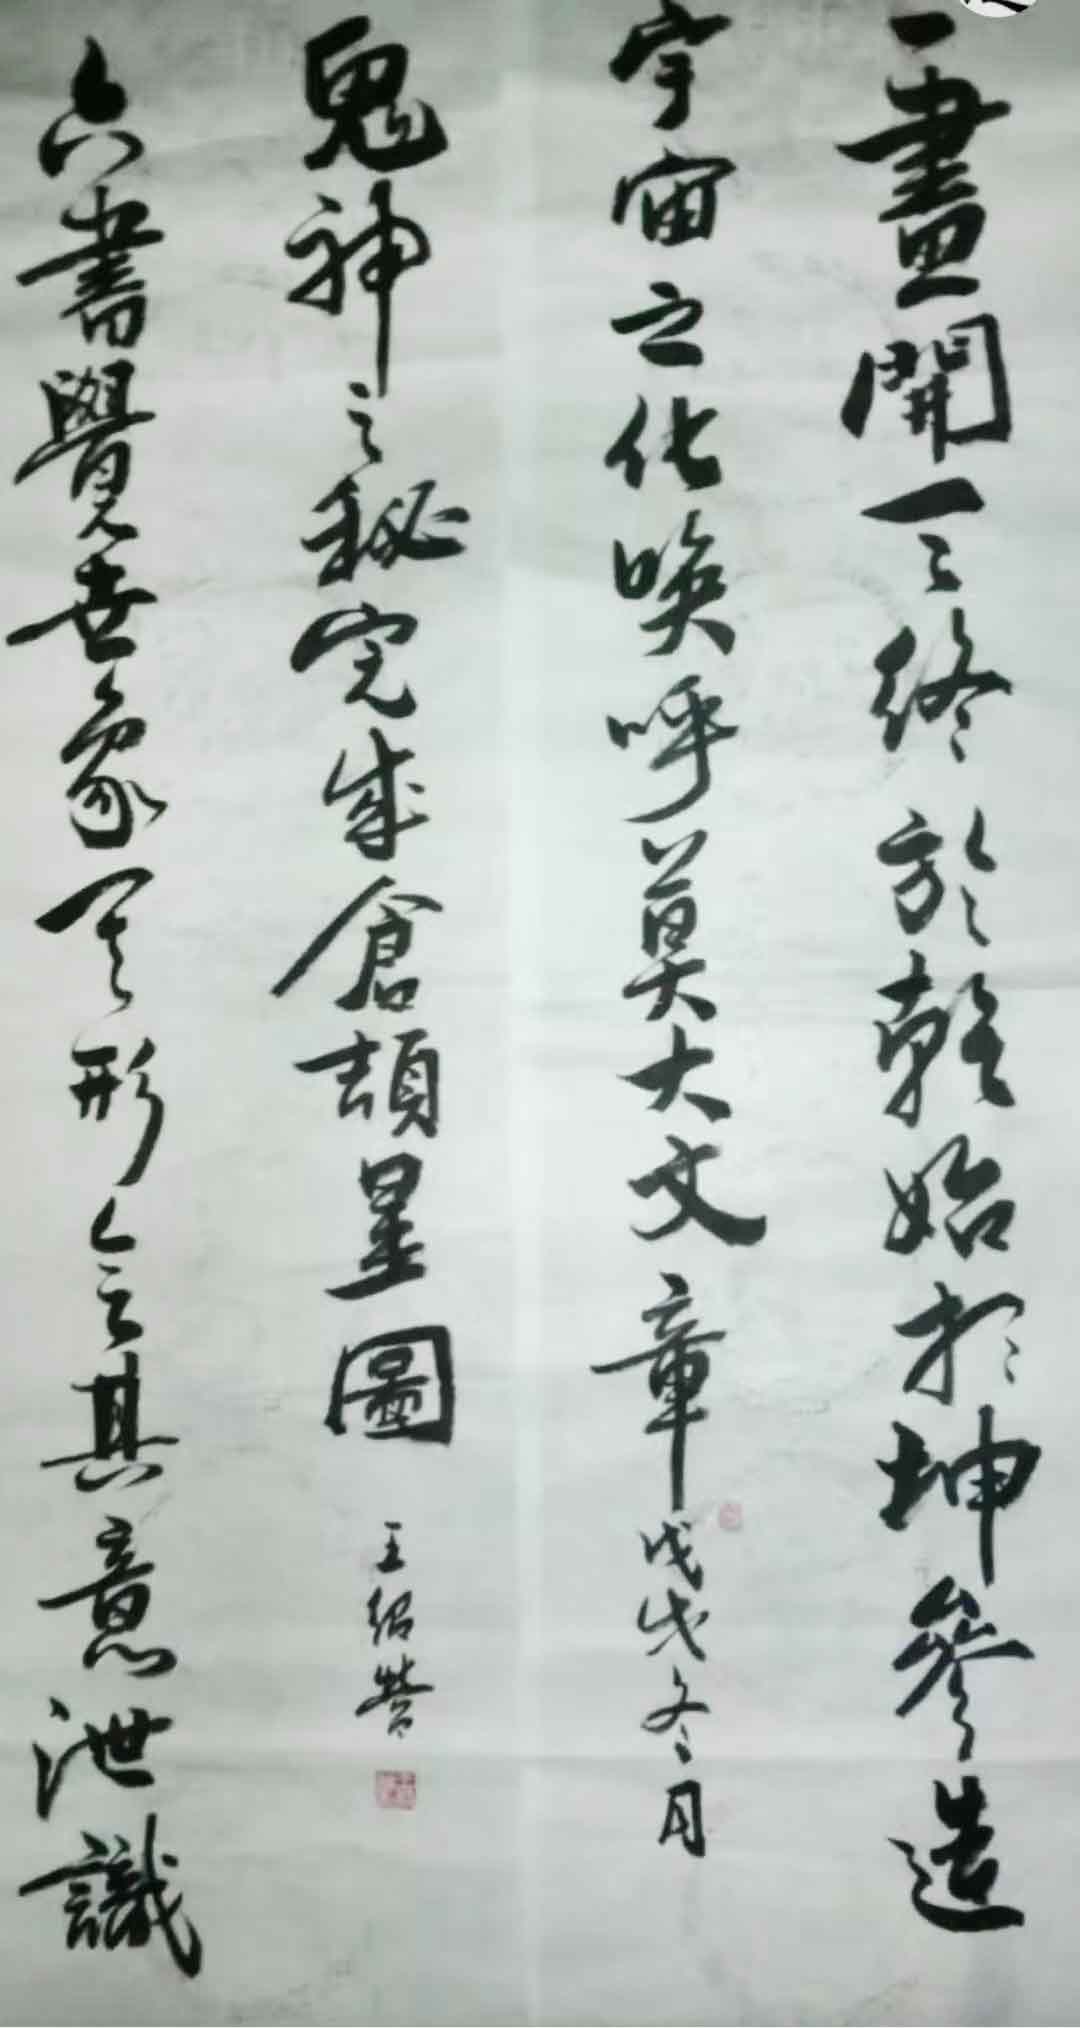 一畫開天終於乾始於坤參造
宇宙之化喚呼莫大文章
戊戌冬月
六書覺世象其形会其意泄識
鬼神之秘完成倉頡星圖
王绍營